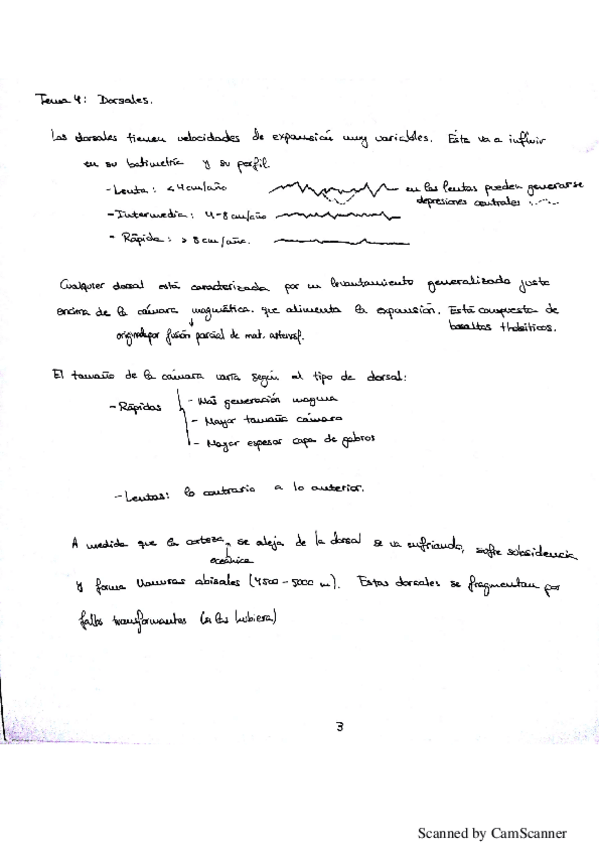 Tema 4: Dorsales.
Las dorsales tienen velocidades de expansión muy variables. Esta va a influir
en su batimetría y su perfil.
- Lenta: < 4 cm/año en las lentas pueden generarse
depresiones centrales
- Intermedia: 4-8 cm/año
- Rápida: > 8 cm/año.
Cualquier dorsal está caracterizada por un levantamiento generalizado justo
encima de la cámara magmática. que alimenta la expansión. Está compuesta de
basaltos tholeíticos.
origina por fusión parcial de mat. astenosf.
El tamaño de la cámara varía según el tipo de dorsal:
- Rápidas
- Más generación magma
- Mayor tamaño cámara
- Mayor espesor capa de gabros
- Lentas: lo contrario a lo anterior.
A medida que la corteza se aleja de la dorsal se va enfriando, sufre subsidencia
oceánica
y forma llanuras abisales (4500 - 5000 m). Estas dorsales se fragmentan por
fallas transformantes (si las hubiera)
3
Scanned by CamScanner